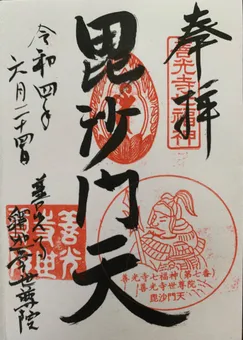 奉拝
善光寺七福神
毘沙門天
善光寺七福神(第七番)
善光寺世尊院
毘沙門天
令和四年
六月二十四日
善光寺
釋迦堂世尊院